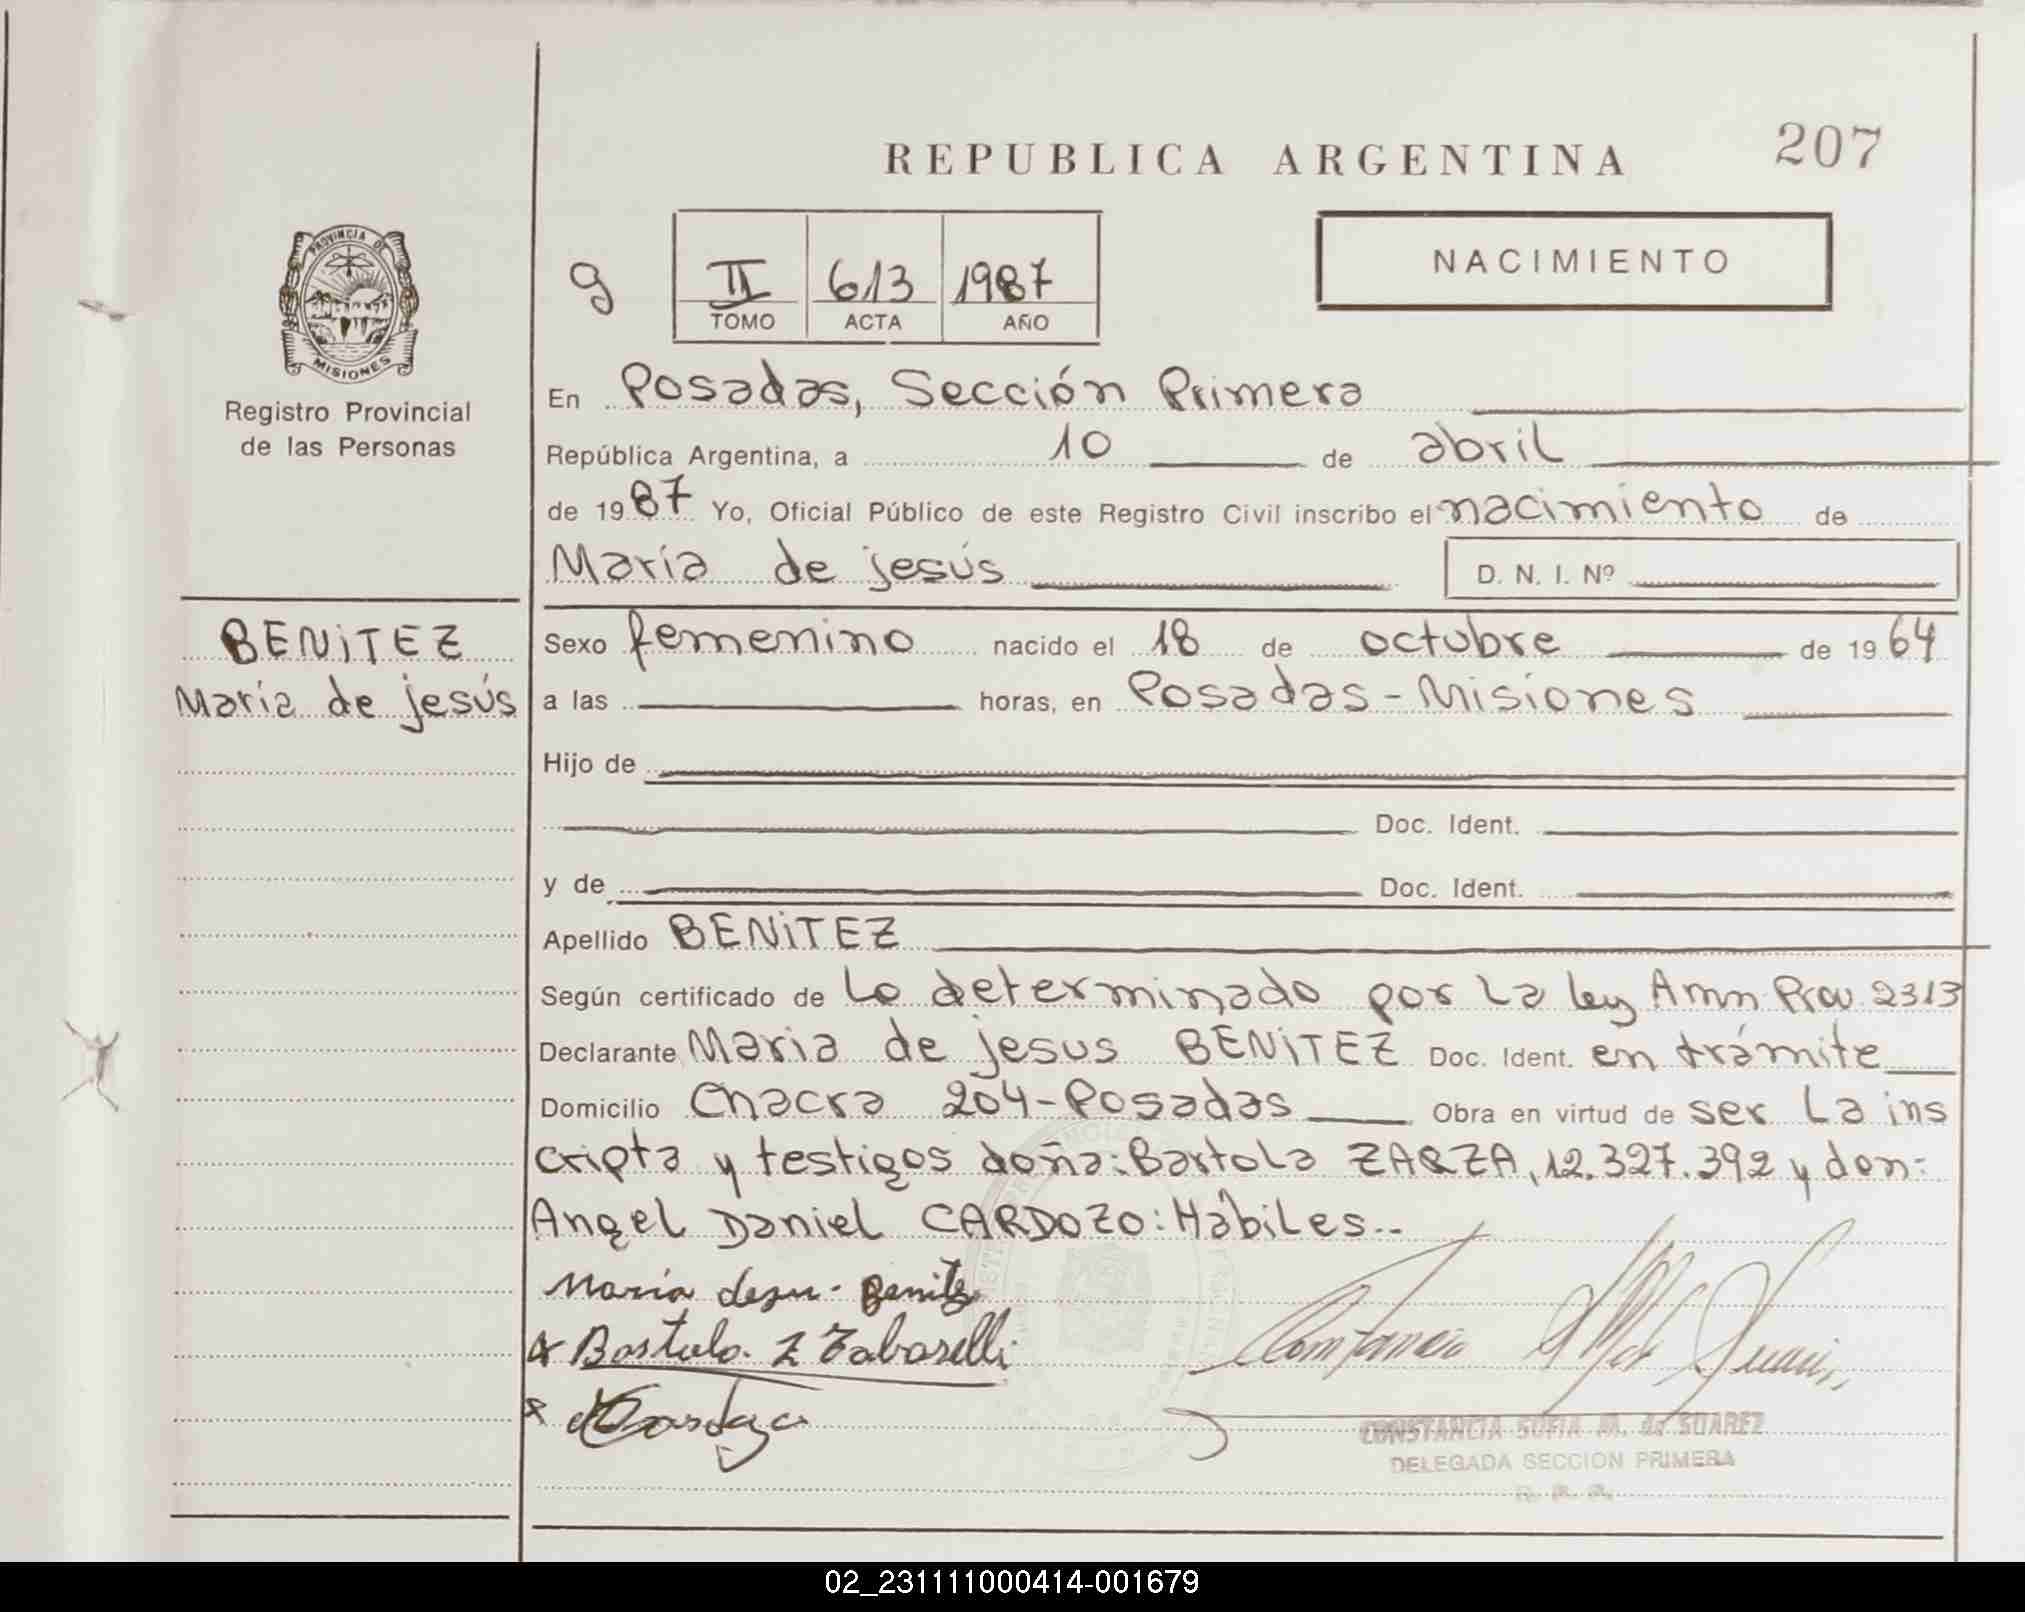 REPUBLICA ARGENTINA
207
NACIMIENTO
g
II 613 1987
TOMO ACTA AÑO
PROVINCIA DE
MISIONES
Registro Provincial
de las Personas
En Posadas, Sección Primera
República Argentina, a 10 de abril
de 1987 Yo, Oficial Público de este Registro Civil inscribo el nacimiento de
María de jesús D. N. I. Nº
BENITEZ
María de jesús
Sexo femenino nacido el 18 de octubre de 1964
a las horas, en Posadas - Misiones
Hijo de
Doc. Ident.
y de Doc. Ident.
Apellido BENITEZ
Según certificado de Lo determinado por La ley Amn Prov 2313
Declarante Maria de jesus BENITEZ Doc. Ident. en trámite
Domicilio Chacra 204-Posadas Obra en virtud de ser La ins
cripta y testigos doña: Bartola ZARZA, 12.327.392 y don:
Angel Daniel CARDOZO: Hábiles..
María Benitez
Bartola Z
CONSTANCIA SOFIA M. de SUAREZ
DELEGADA SECCION PRIMERA
02_231111000414-001679